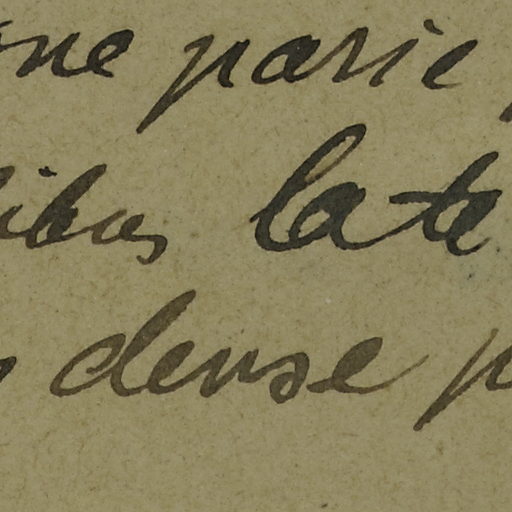 ne parie
libus late
dense p